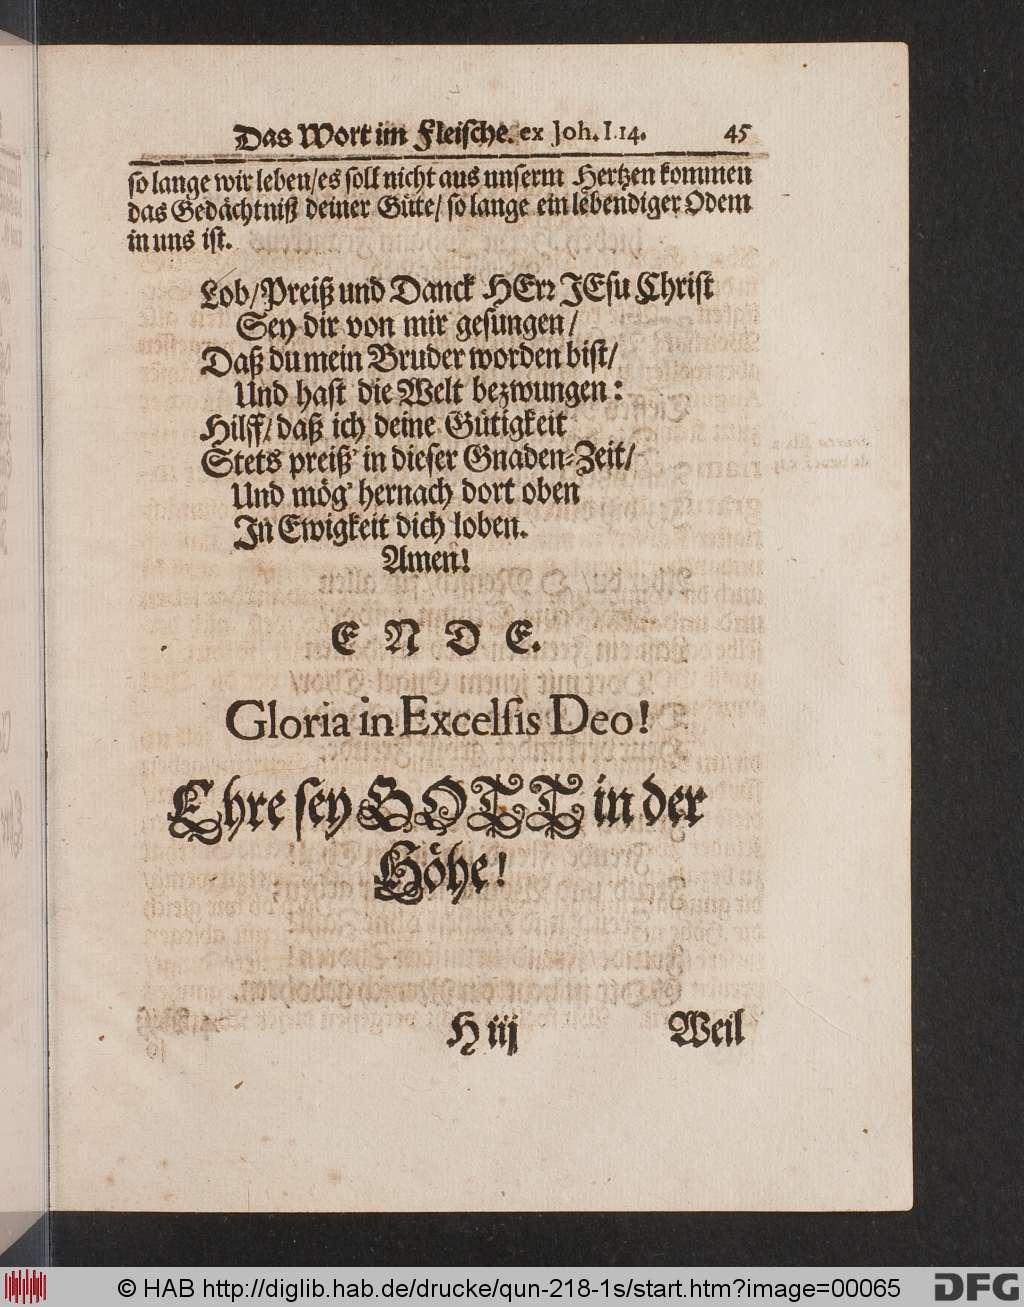 Das Wort im Fleische. ex Joh. I. 14. 45
so lange wir leben/es soll nicht aus unserm Hertzen kommen
das Gedächtniß deiner Güte/ so lange ein lebendiger Odem
in uns ist.
Lob/Preiß und Danck HErr JEsu Christ
Sey dir von mir gesungen/
Daß du mein Bruder worden bist/
Und hast die Welt bezwungen:
Hilff/daß ich deine Gütigkeit
Stets preiß' in dieser Gnaden-Zeit/
Und mög' hernach dort oben
In Ewigkeit dich loben.
Amen!
E N D E.
Gloria in Excelsis Deo!
Ehre sey GOTT in der
Höhe!
H iij Weil
© HAB http://diglib.hab.de/drucke/qun-218-1s/start.htm?image=00065 DFG